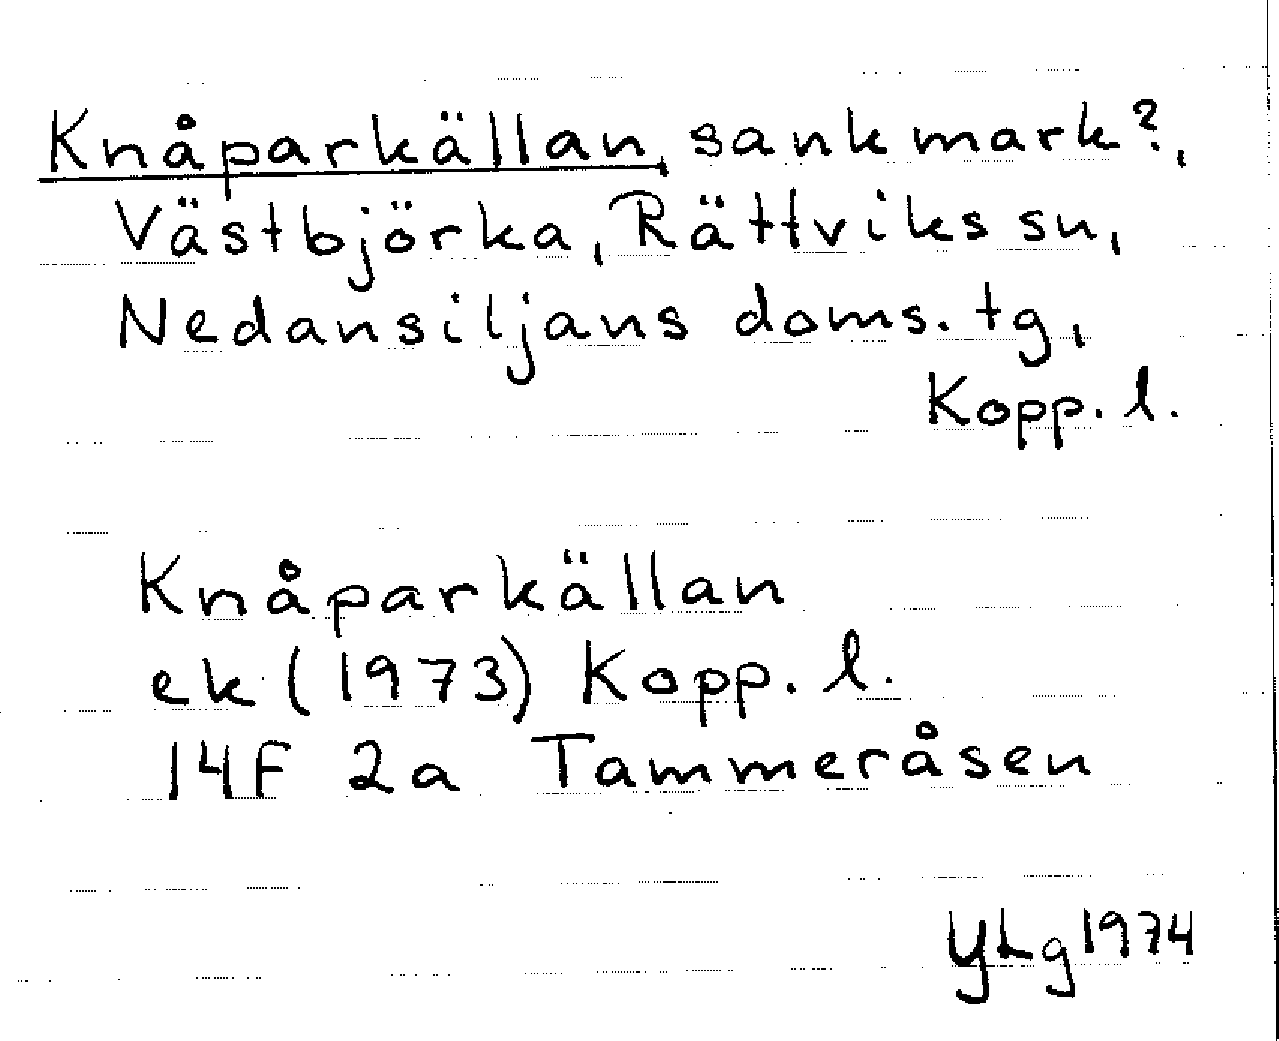 Knåparkällan, sankmark?,
Västbjörka, Rättviks sn,
Nedansiljans doms. tg,
Kopp. l.
Knåparkällan
ek (1973) Kopp. l.
14F 2a Tammeråsen
YLg 1974